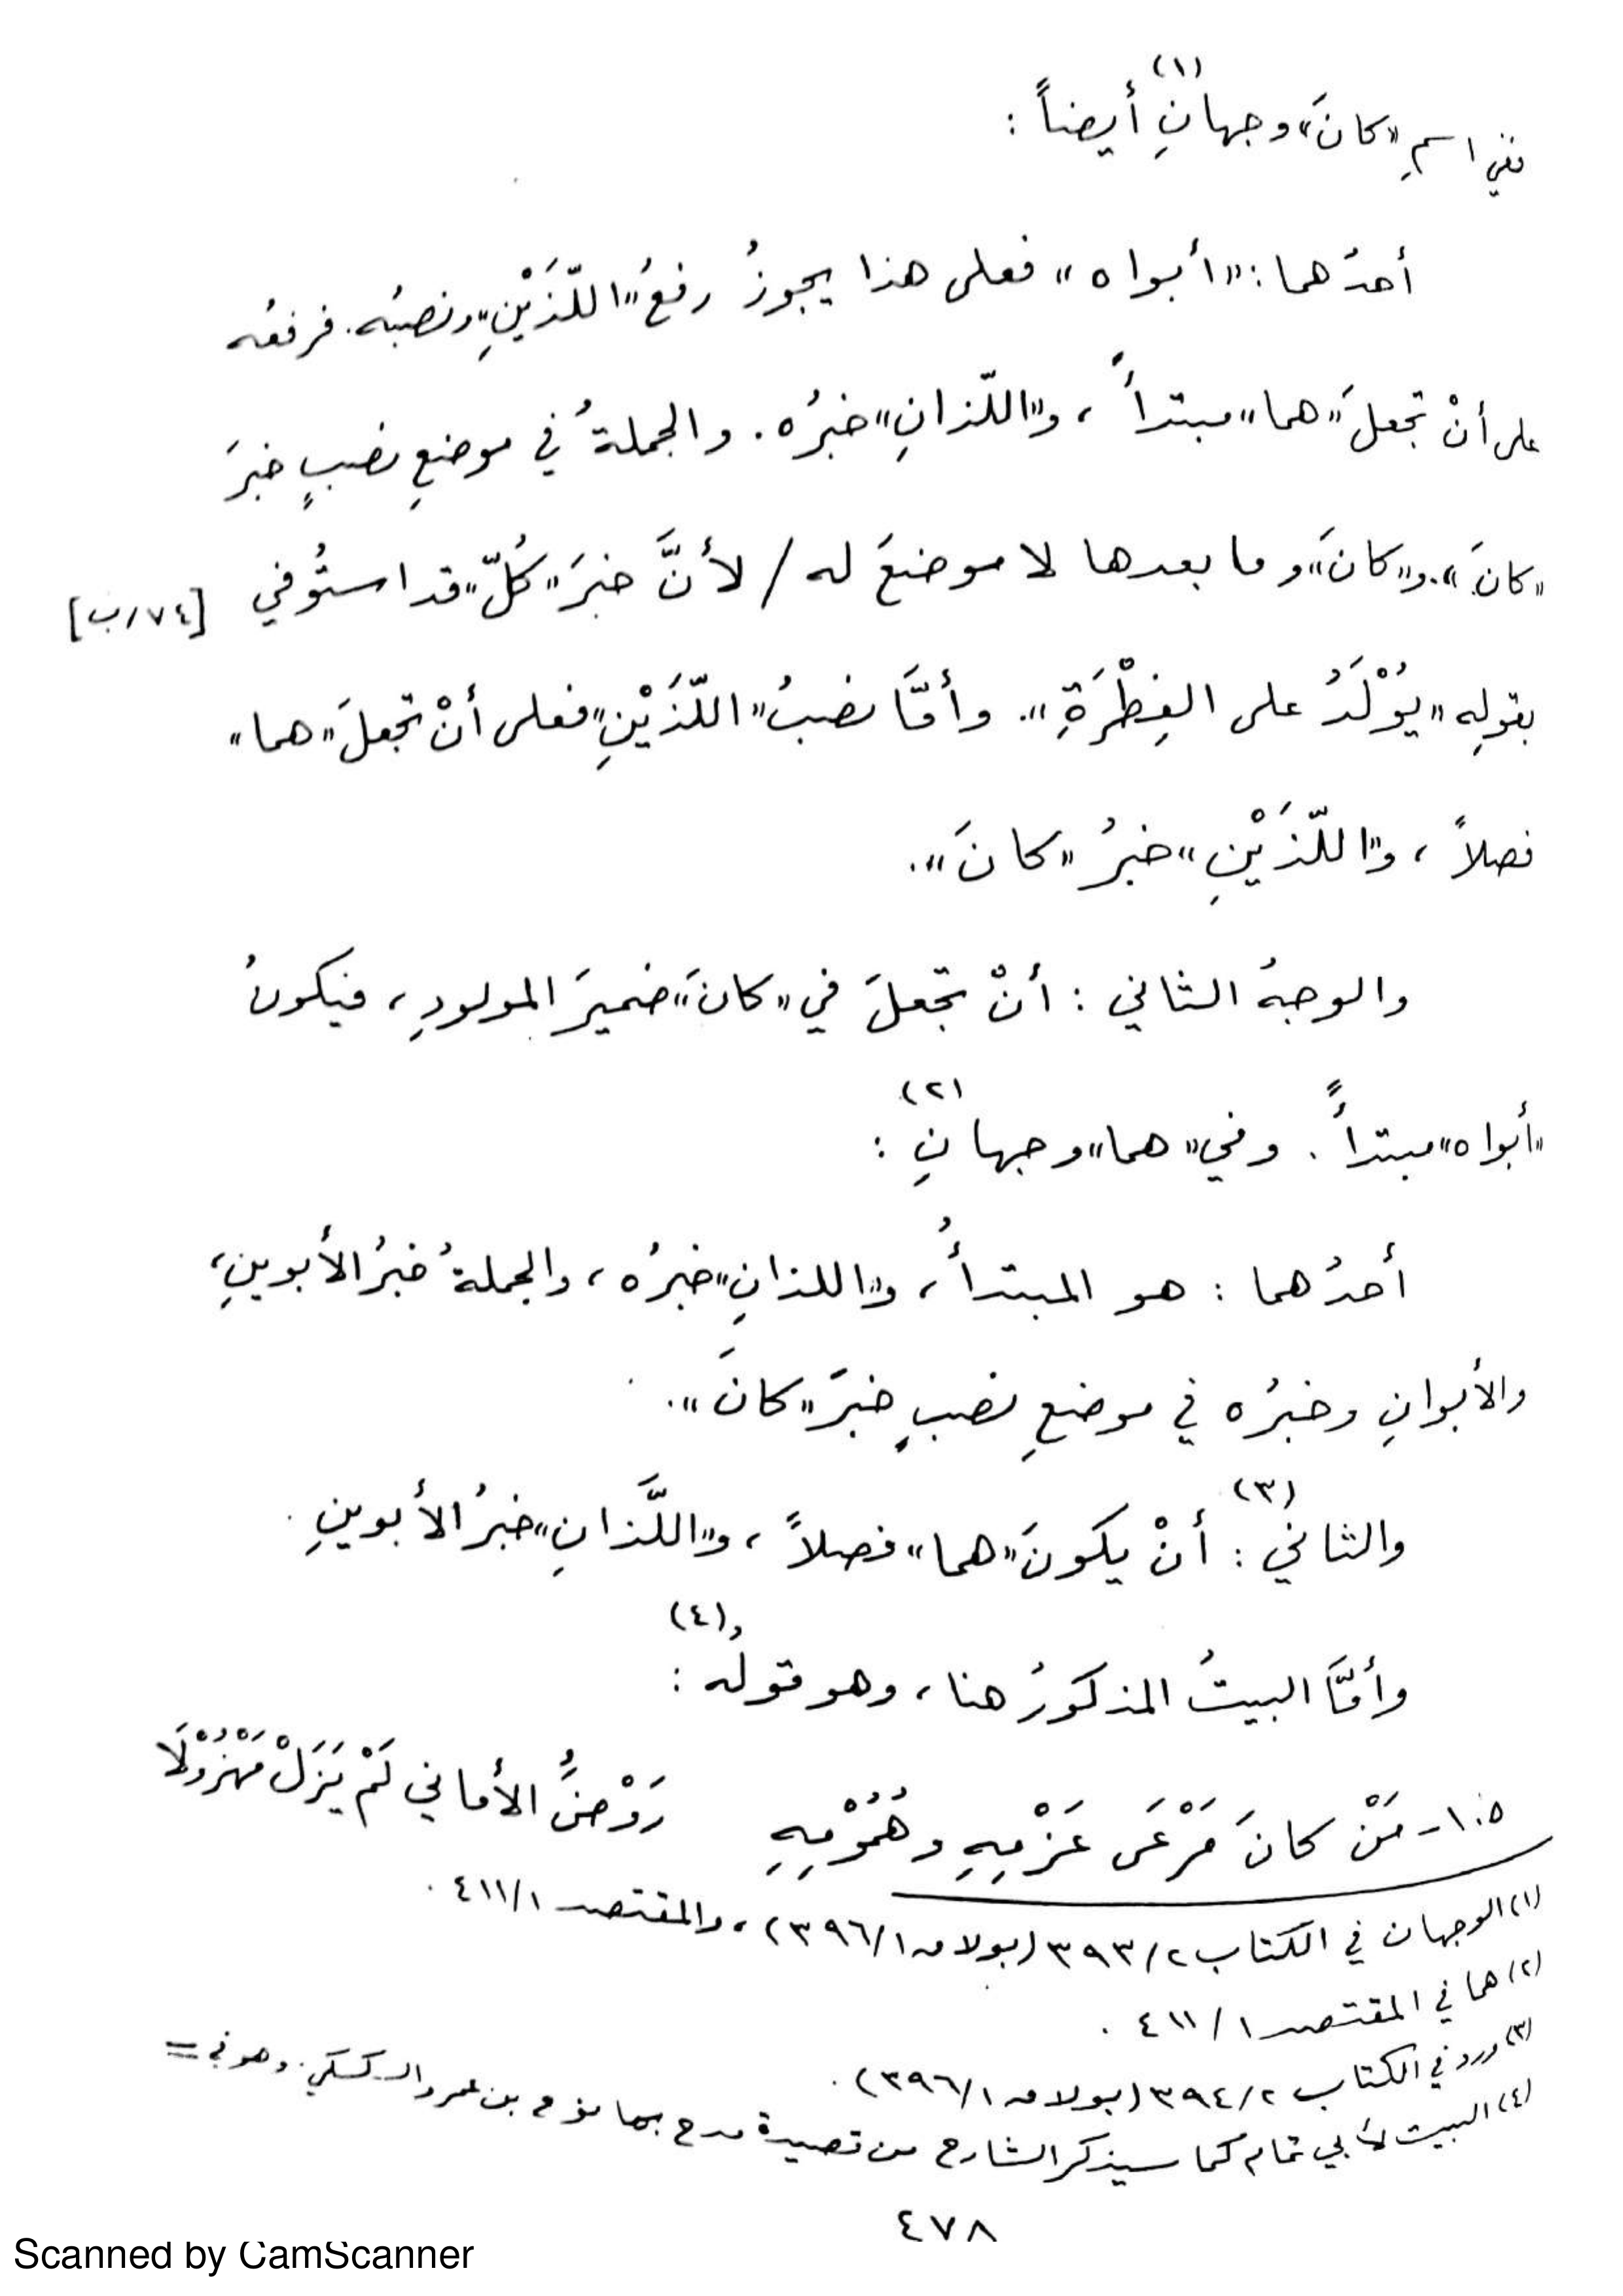 ففي اسمِ «كانَ» وجهانِ(١) أيضاً :
أحدُهما : «أبواه» فعلى هذا يجوزُ رفعُ «اللّذَيْنِ» ونصبُه. فرفعُه
على أنْ تجعلَ «هما» مبتدأً ، و«اللّذانِ» خبرُه . والجملةُ في موضعِ نصبٍ خبرَ
«كانَ». و«كانَ» وما بعدها لا موضعَ له / لأنَّ خبرَ «كُلّ» قد استُوفي [٧٤/ب]
بقولِه «يُوْلَدُ على الفِطْرَةِ». وأمّا نصبُ «اللّذَيْنِ» فعلى أنْ تجعلَ «هما»
فصلاً ، و«اللّذَيْنِ» خبرُ «كانَ».
والوجهُ الثاني : أنْ تجعلَ في «كانَ» ضميرَ المولودِ ، فيكونُ
«أبواه» مبتدأً . وفي «هما» وجهانِ(٢) :
أحدُهما : هو المبتدأُ ، و«اللذانِ» خبرُه ، والجملةُ خبرُ الأبوينِ ،
والأبوانِ وخبرُه في موضعِ نصبٍ خبرَ «كانَ».
والثاني(٣) : أنْ يكونَ «هما» فصلاً ، و«اللَّذانِ» خبرُ الأبوينِ .
وأمّا البيتُ المذكورُ هنا ، وهو قولُه(٤) :
١٠٥- مَنْ كانَ مَرْعَى عَزْمِهِ وهُمُوْمِهِ رَوْضُ الأماني لَمْ يَزَلْ مَهْزُوْلَا
(١) الوجهان في الكتاب ٣٩٣/٢ (بولاق ٣٩٦/١) ، والمقتصد ٤١١/١ .
(٢) هما في المقتصد ٤١١/١ .
(٣) ورد في الكتاب ٣٩٤/٢ (بولاق ٣٩٦/١) .
(٤) البيت لأبي تمام كما سيذكر الشارح من قصيدة مدح بها نوح بن عمرو السكسكي . وهو في =
٤٧٨
Scanned by CamScanner